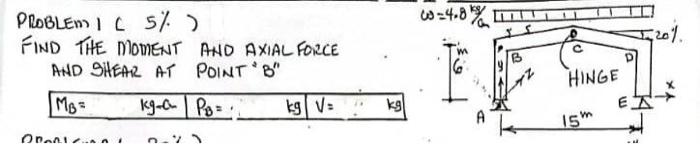 PROBLEM 1 ( 5% )
FIND THE MOMENT AND AXIAL FORCE
AND SHEAR AT POINT "B"
MB= kg-a PB= kg V= kg
ω=4.8 kg/a
20%
6 m
y
z
B
C
D
HINGE
x
A
E
15m